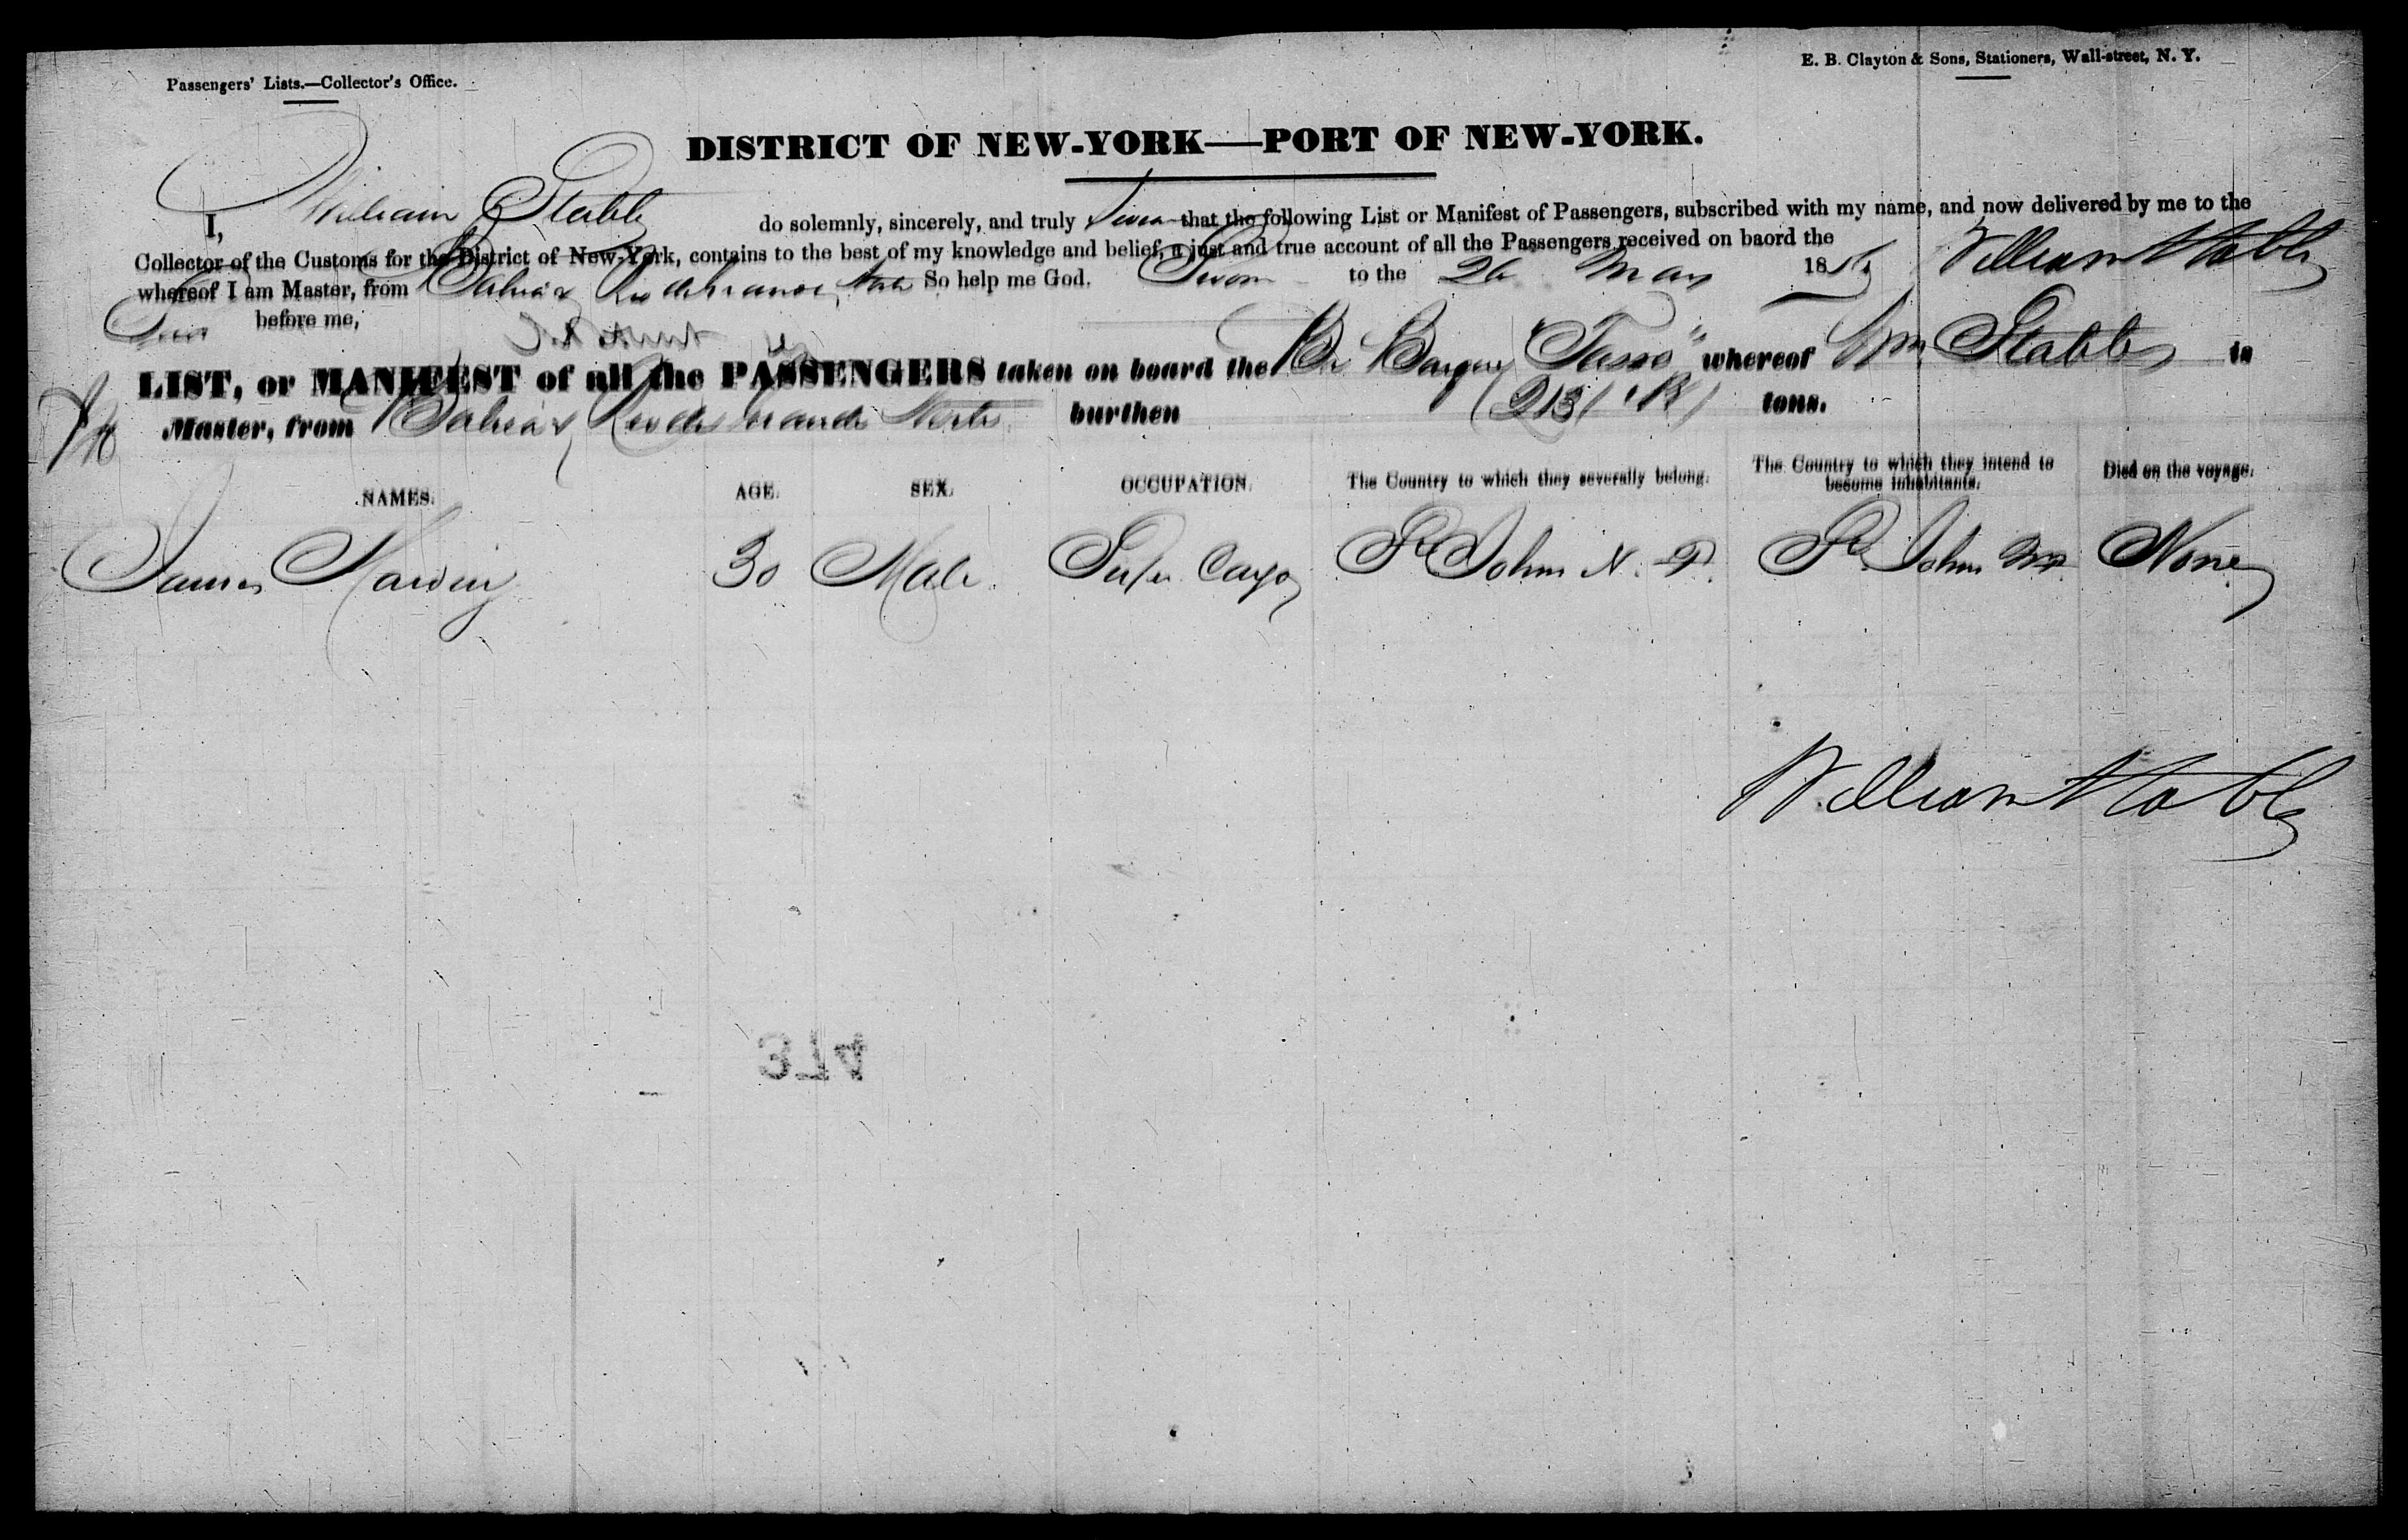 Passengers' Lists.—Collector's Office.
E. B. Clayton & Sons, Stationers, Wall-street, N. Y.
DISTRICT OF NEW-YORK—PORT OF NEW-YORK.
I, William Stabb do solemnly, sincerely, and truly Swear that the following List or Manifest of Passengers, subscribed with my name, and now delivered by me to the
Collector of the Customs for the District of New-York, contains to the best of my knowledge and belief, a just and true account of all the Passengers received on baord the
whereof I am Master, from Bahia & Rio de Grande So help me God. Sworn to the 26 May 18 William Stabb
before me,
LIST, or MANIFEST of all the PASSENGERS taken on board the Br Barque "Tasso" whereof Wm Stabb is
Master, from Bahia & Rio de Grande Norte burthen tons.
NAMES. AGE. SEX. OCCUPATION. The Country to which they severally belong. The Country to which they intend to become inhabitants. Died on the voyage.
James 30 Male Super Cargo St Johns N. F. St Johns NF None
William Stabb
374